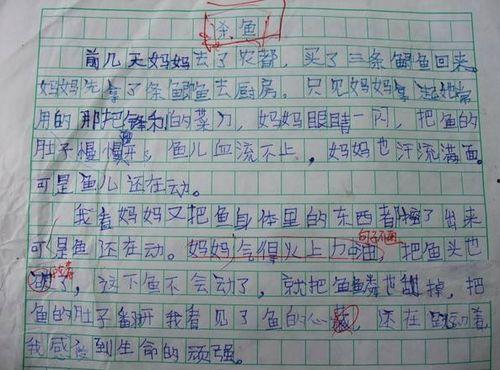 杀鱼
前几天妈妈去了农都，买了三条鲫鱼回来。
妈妈先拿了条鲫鱼去厨房。只见妈妈拿起她常
用的那把锋利的菜刀，妈妈眼睛一闪，把鱼的
肚子慢慢，鱼儿血流不止，妈妈也汗流满面。
可是鱼儿还在动。
我看妈妈又把鱼身体里的东西都了出来
可是鱼还在动。妈妈气得火上力 句子不通 把鱼头也
了，这下鱼不会动了，就把鱼鳞也掉，把
鱼的肚子翻开我看见了鱼的心，还在动着，
我感受到生命的顽强。